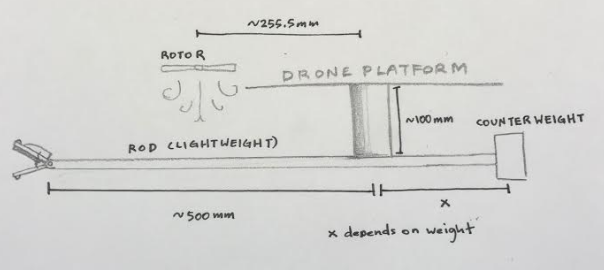 ~255.5mm
ROTOR
DRONE PLATFORM
~100mm
COUNTERWEIGHT
ROD (LIGHTWEIGHT)
~500mm
x
x depends on weight